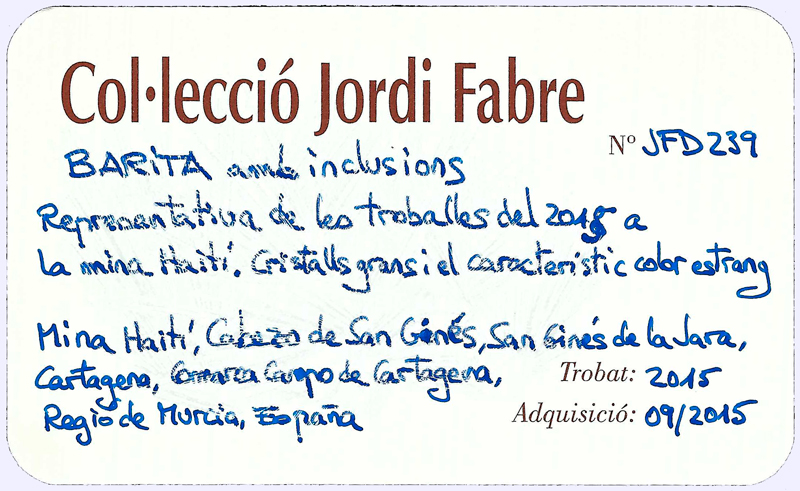 Col·lecció Jordi Fabre
Nº JFD239
BARITA amb inclusions
Representativa de les troballes del 2015 a
la mina Haití. Cristalls grans i el característic color estrany
Mina Haití, Cabezo de San Ginés, San Ginés de la Jara,
Cartagena, Comarca Campo de Cartagena,
Trobat: 2015
Regió de Murcia, España
Adquisició: 09/2015